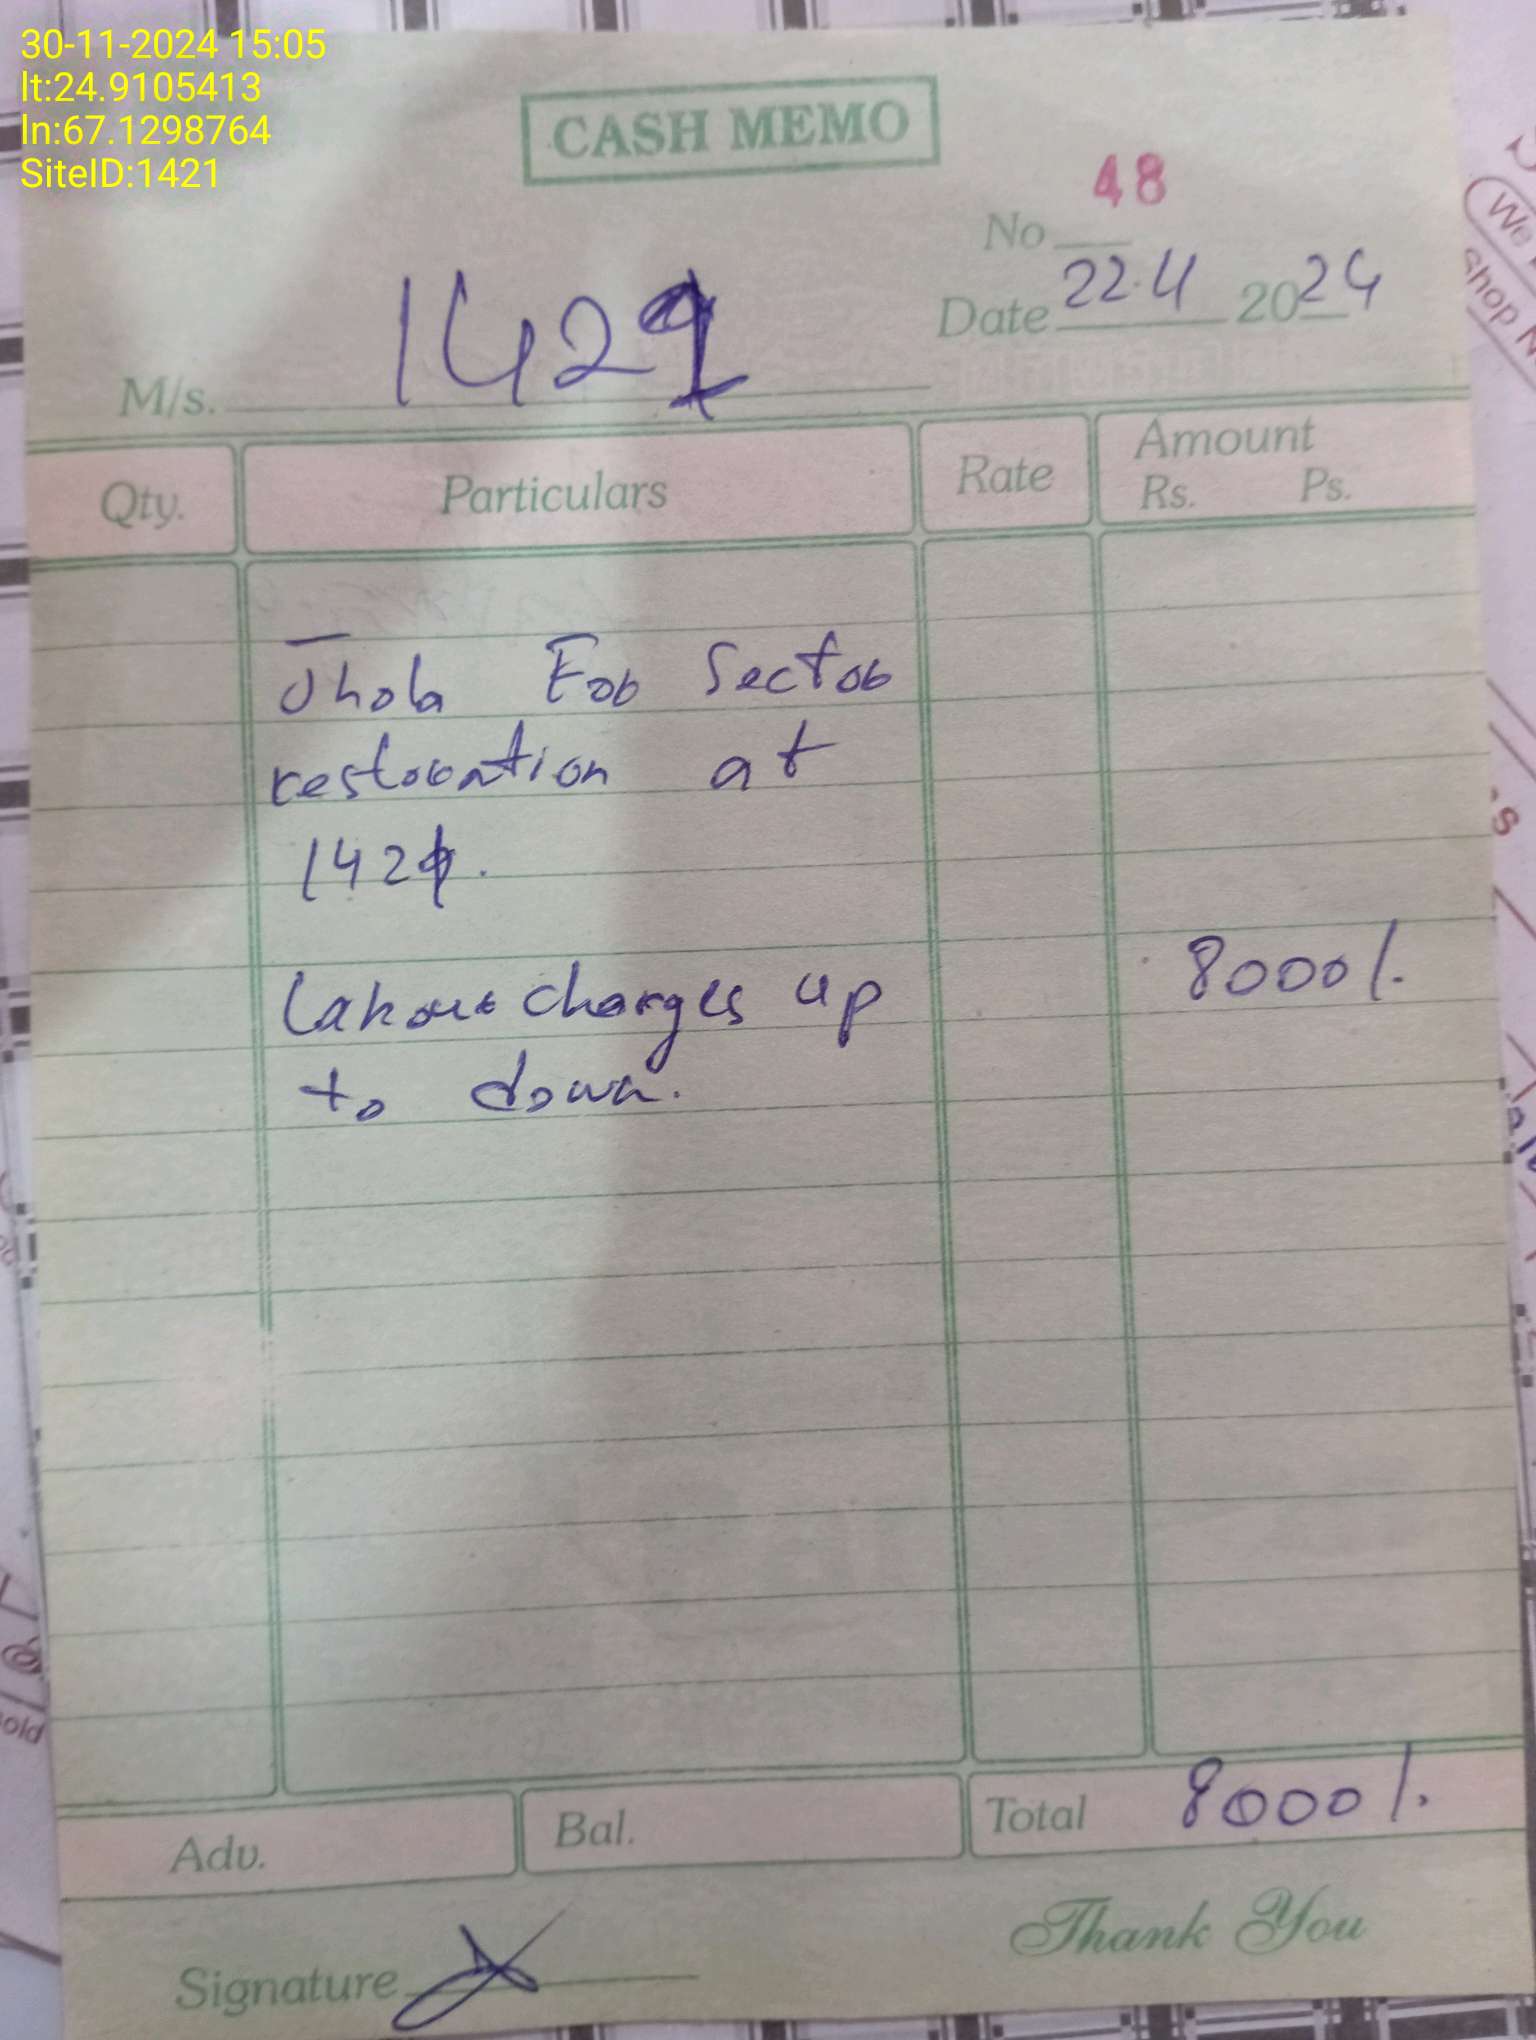 30-11-2024 15:05
lt:24.9105413
ln:67.1298764
SiteID:1421
CASH MEMO
No 48
Date 22.11 2024
M/s. 1421
Qty. Particulars Rate Amount
Rs. Ps.
Jhola For Sector
restoration at
1421.
Labour charges up 8000/.
to down.
Adv. Bal. Total 8000/.
Thank You
Signature
We
shop N
old